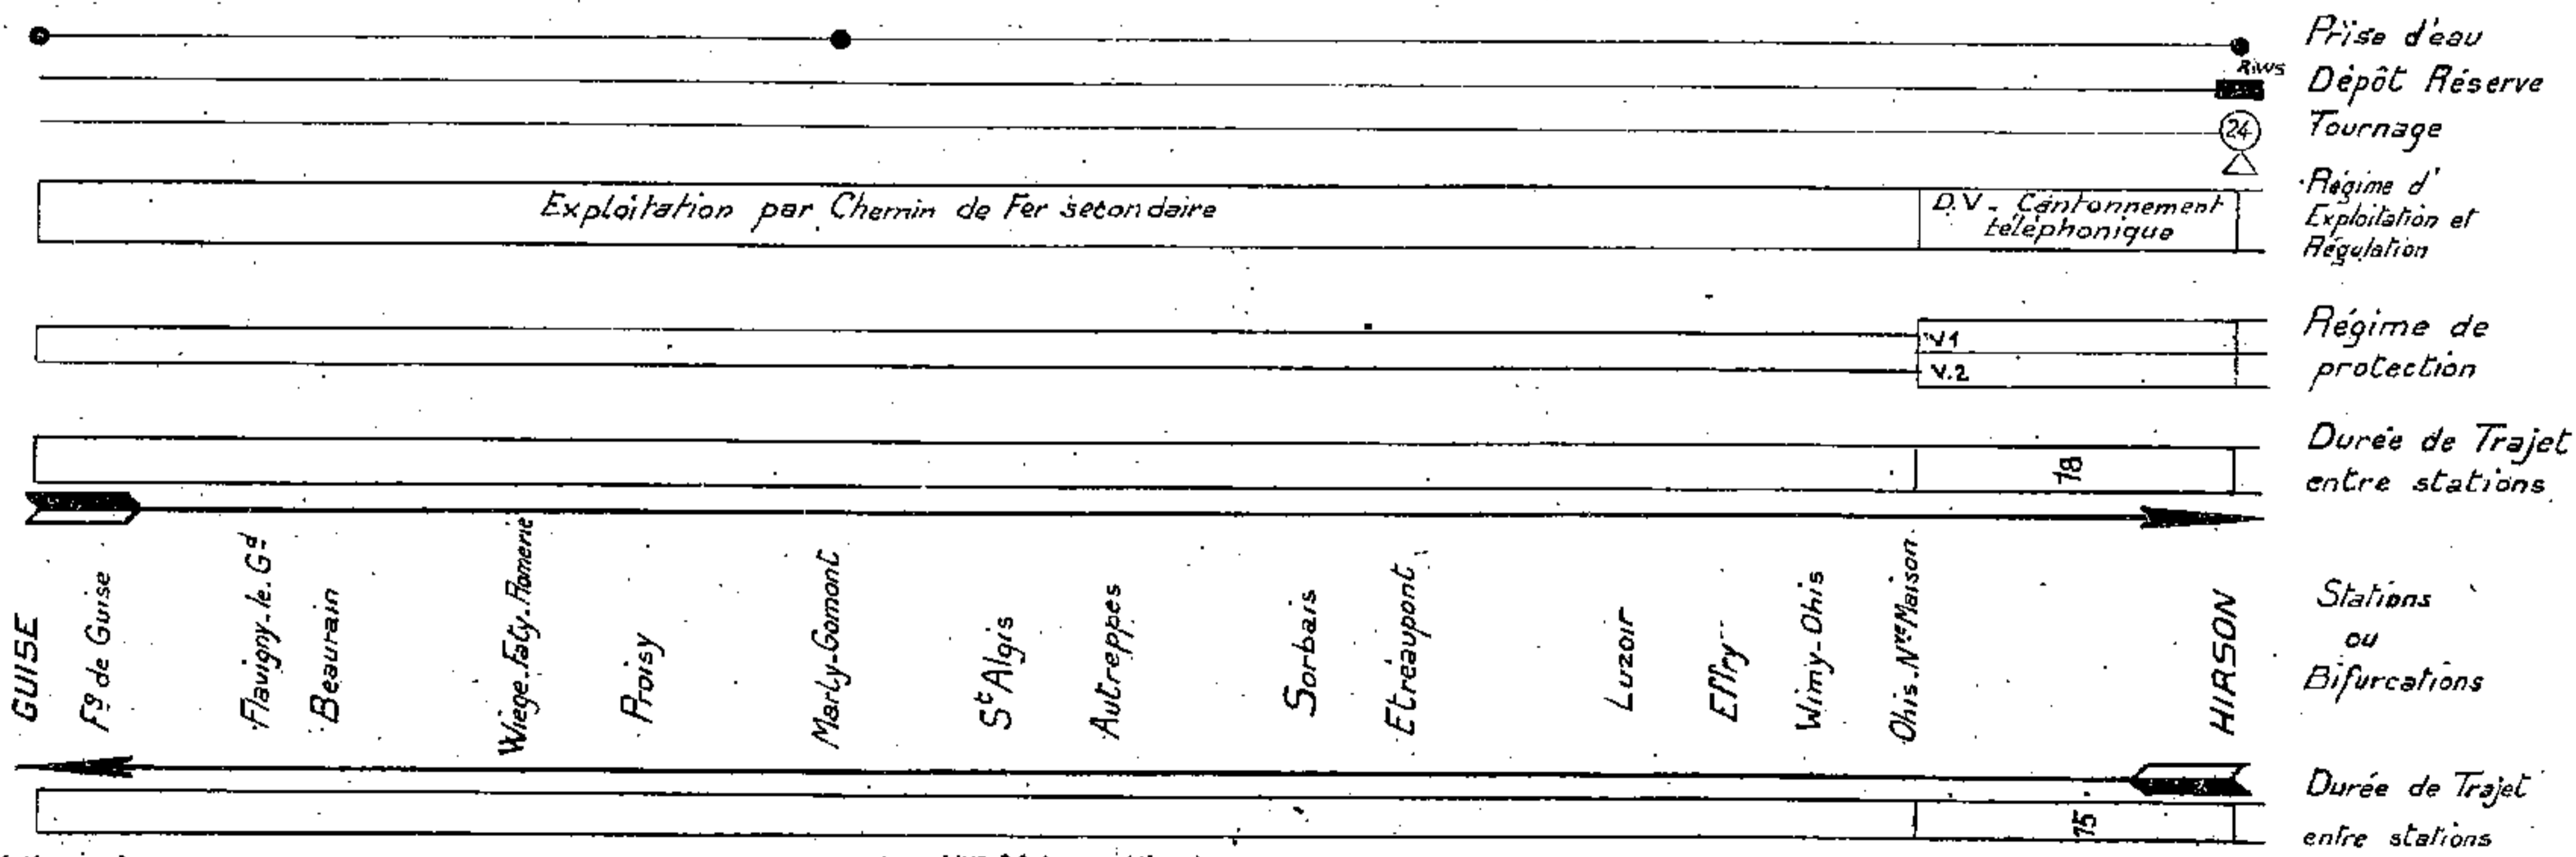 Prise d'eau
RIWS
Dépôt Réserve
24
Tournage
Régime d'
Exploitation et
Régulation
Exploitation par Chemin de Fer secondaire
D.V. - Cantonnement
téléphonique
Régime de
protection
V1
V.2
Durée de Trajet
entre stations
18
GUISE
Fg de Guise
Flavigny-le-Gd
Beaurain
Wiege-Faty-Romerie
Proisy
Marly-Gomont
St Algis
Autreppes
Sorbais
Etreaupont
Luzoir
Effry
Wimy-Ohis
Ohis-Nve Maison
HIRSON
Stations
ou
Bifurcations
Durée de Trajet
entre stations
15